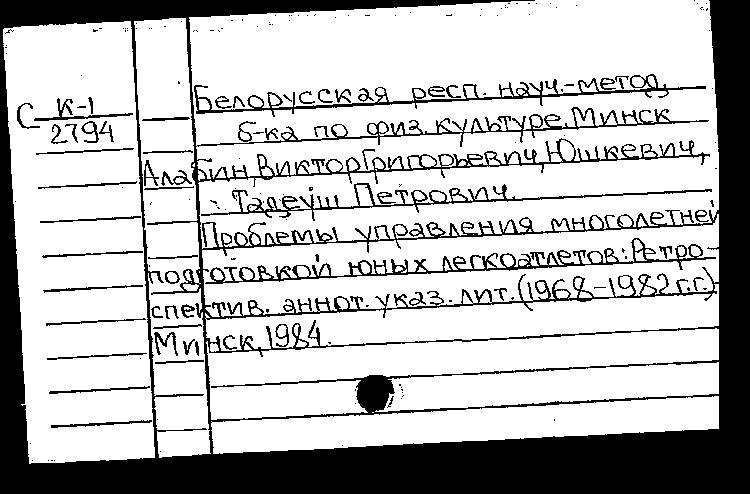 Белорусская респ. науч.-метод.
С К-1
2794
б-ка по физ. культуре. Минск
Алабин, Виктор Григорьевич, Юшкевич,
Тадеуш Петрович.
Проблемы управления многолетней
подготовкой юных легкоатлетов: Ретро-
спектив. аннот. указ. лит. (1968-1982 г.г.)
Минск, 1984.